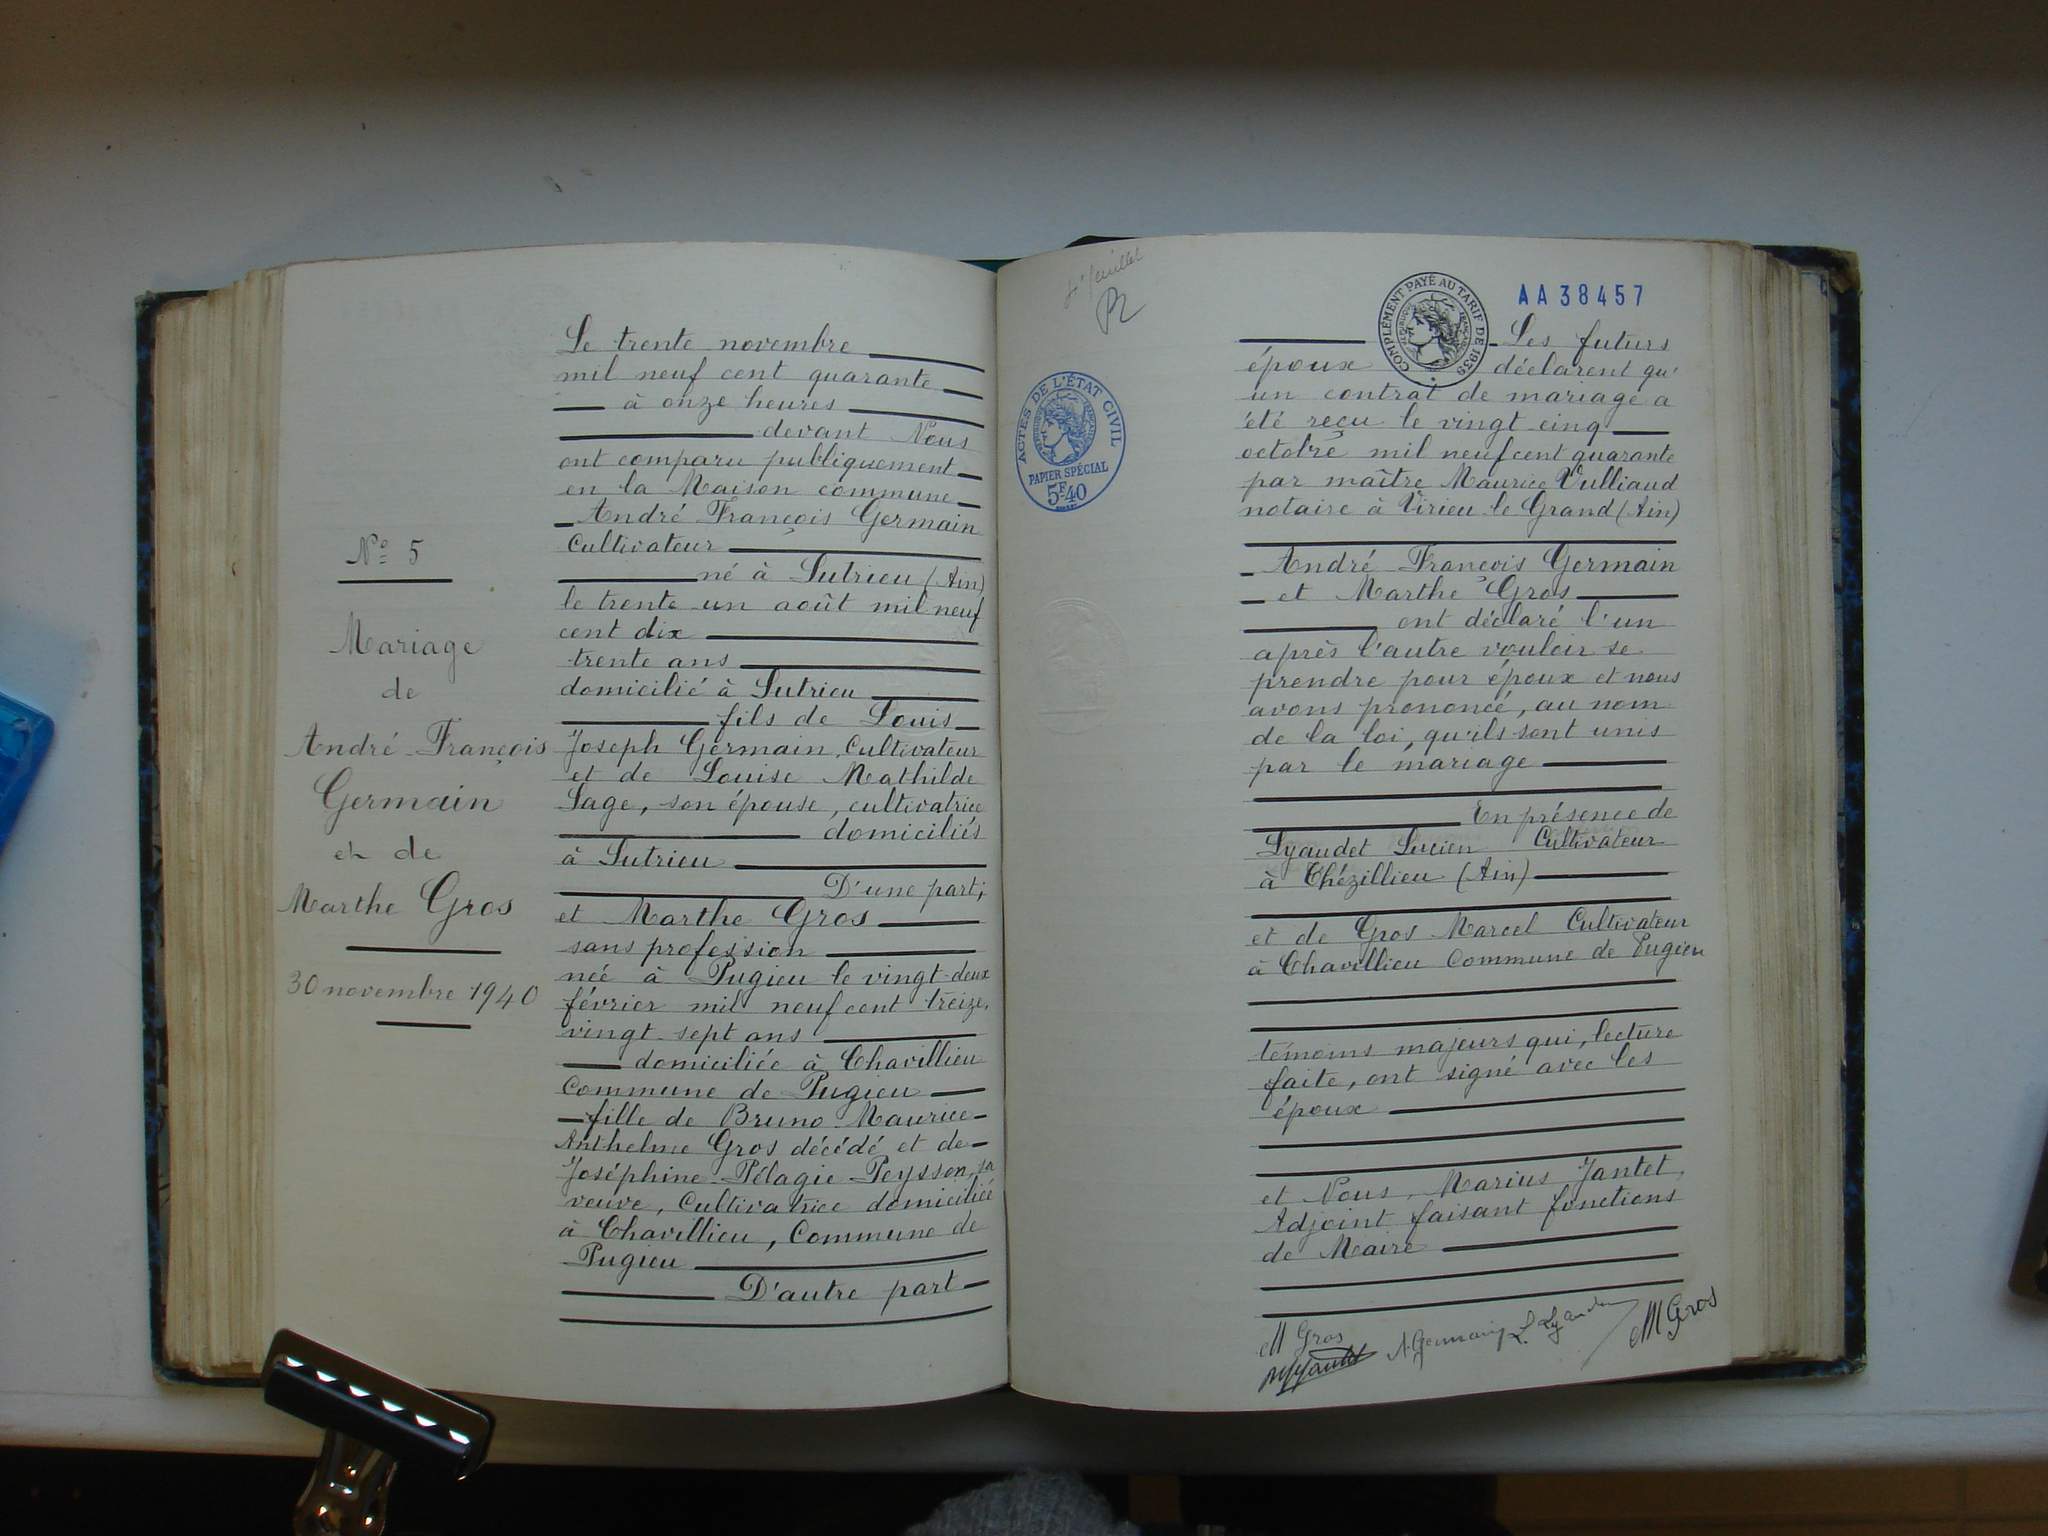 N° 5
Mariage
de
André François
Germain
et de
Marthe Gros
30 novembre 1940
Le trente novembre
mil neuf cent quarante
à onze heures
devant Nous
ont comparu publiquement
en la Maison commune
André François Germain
Cultivateur
né à Sutrieu (Ain)
le trente-un août mil neuf
cent dix
trente ans
domicilié à Sutrieu
fils de Louis
Joseph Germain, Cultivateur
et de Louise Mathilde
Sage, son épouse, cultivatrice
domiciliés
à Sutrieu
D'une part;
et Marthe Gros
sans profession
née à Pugieu le vingt-deux
février mil neuf cent treize,
vingt-sept ans
domiciliée à Chavillieu
Commune de Pugieu
fille de Bruno Maurice
Anthelme Gros décédé et de
Joséphine Pélagie Peysson, sa
veuve, Cultivatrice domiciliée
à Chavillieu, Commune de
Pugieu
D'autre part
4e feuillet
ACTES DE L'ÉTAT CIVIL
PAPIER SPÉCIAL
5F40
COMPLÉMENT PAYÉ AU TARIF DE 1939
AA38457
Les futurs
époux déclarent qu'
un contrat de mariage a
été reçu le vingt-cinq
octobre mil neuf cent quarante
par maître Maurice Vulliaud
notaire à Virieu-le-Grand (Ain)
André François Germain
et Marthe Gros
ont déclaré l'un
après l'autre vouloir se
prendre pour époux et nous
avons prononcé, au nom
de la loi, qu'ils sont unis
par le mariage
En présence de
Lyaudet Lucien Cultivateur
à Chézillieu (Ain)
et de Gros Marcel Cultivateur
à Chavillieu Commune de Pugieu
témoins majeurs qui, lecture
faite, ont signé avec les
époux
et Nous, Marius Jantet,
Adjoint faisant fonctions
de Maire
M Gros A. Germain L. Lyaudet M Gros